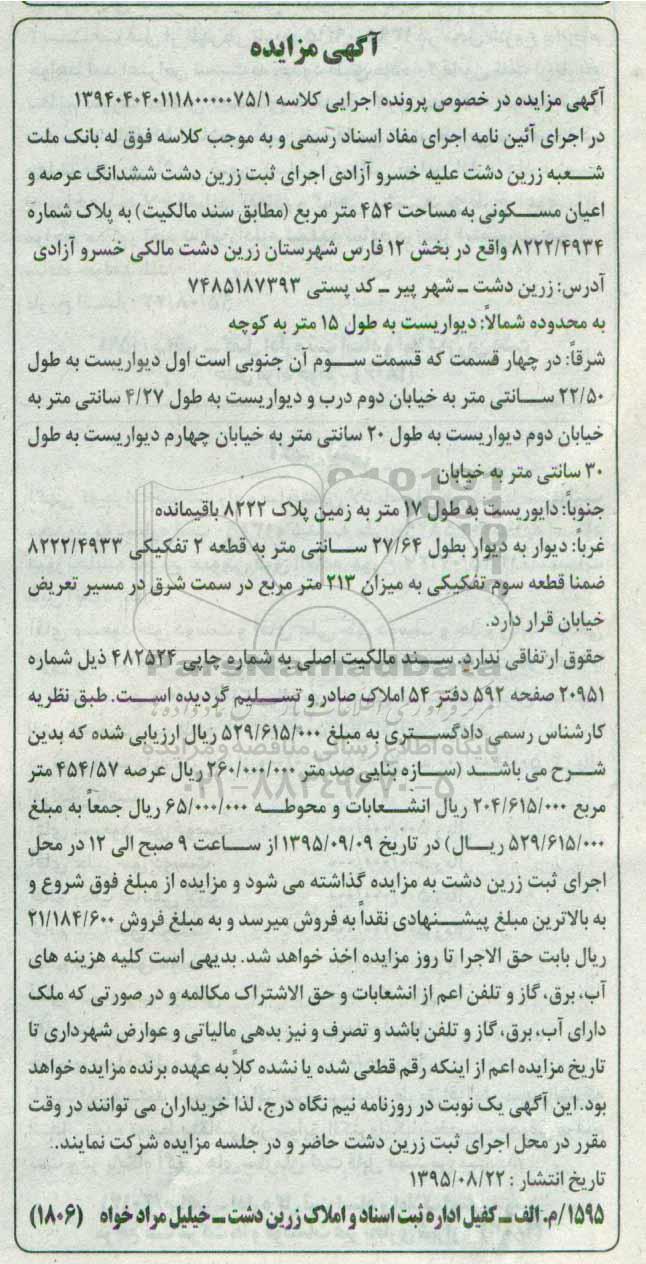 آگهی مزایده
آگهی مزایده در خصوص پرونده اجرایی کلاسه ۱۳۹۴۰۴۰۴۰۱۱۱۸۰۰۰۰۰۷۵/۱
در اجرای آئین نامه اجرای مفاد اسناد رسمی و به موجب کلاسه فوق له بانک ملت
شعبه زرین دشت علیه خسرو آزادی اجرای ثبت زرین دشت ششدانگ عرصه و
اعیان مسکونی به مساحت ۴۵۴ متر مربع (مطابق سند مالکیت) به پلاک شماره
۸۲۲۲/۴۹۳۴ واقع در بخش ۱۲ فارس شهرستان زرین دشت مالکی خسرو آزادی
آدرس: زرین دشت ـ شهر پیر ـ کد پستی ۷۴۸۵۱۸۷۳۹۳
به محدوده شمالاً: دیواریست به طول ۱۵ متر به کوچه
شرقاً: در چهار قسمت که قسمت سوم آن جنوبی است اول دیواریست به طول
۲۲/۵۰ سانتی متر به خیابان دوم درب و دیواریست به طول ۴/۲۷ سانتی متر به
خیابان دوم دیواریست به طول ۲۰ سانتی متر به خیابان چهارم دیواریست به طول
۳۰ سانتی متر به خیابان
جنوباً: دایوریست به طول ۱۷ متر به زمین پلاک ۸۲۲۲ باقیمانده
غرباً: دیوار به دیوار بطول ۲۷/۶۴ سانتی متر به قطعه ۲ تفکیکی ۸۲۲۲/۴۹۳۳
ضمنا قطعه سوم تفکیکی به میزان ۲۱۳ متر مربع در سمت شرق در مسیر تعریض
خیابان قرار دارد.
حقوق ارتفاقی ندارد. سند مالکیت اصلی به شماره چاپی ۴۸۲۵۲۴ ذیل شماره
۲۰۹۵۱ صفحه ۵۹۲ دفتر ۵۴ املاک صادر و تسلیم گردیده است. طبق نظریه
کارشناس رسمی دادگستری به مبلغ ۵۲۹/۶۱۵/۰۰۰ ریال ارزیابی شده که بدین
شرح می باشد (سازه بنایی صد متر ۲۶۰/۰۰۰/۰۰۰ ریال عرصه ۴۵۴/۵۷ متر
مربع ۲۰۴/۶۱۵/۰۰۰ ریال انشعابات و محوطه ۶۵/۰۰۰/۰۰۰ ریال جمعاً به مبلغ
۵۲۹/۶۱۵/۰۰۰ ریال) در تاریخ ۱۳۹۵/۰۹/۰۹ از ساعت ۹ صبح الی ۱۲ در محل
اجرای ثبت زرین دشت به مزایده گذاشته می شود و مزایده از مبلغ فوق شروع و
به بالاترین مبلغ پیشنهادی نقداً به فروش میرسد و به مبلغ فروش ۲۱/۱۸۴/۶۰۰
ریال بابت حق الاجرا تا روز مزایده اخذ خواهد شد. بدیهی است کلیه هزینه های
آب، برق، گاز و تلفن اعم از انشعابات و حق الاشتراک مکالمه و در صورتی که ملک
دارای آب، برق، گاز و تلفن باشد و تصرف و نیز بدهی مالیاتی و عوارض شهرداری تا
تاریخ مزایده اعم از اینکه رقم قطعی شده یا نشده کلاً به عهده برنده مزایده خواهد
بود. این آگهی یک نوبت در روزنامه نیم نگاه درج، لذا خریداران می توانند در وقت
مقرر در محل اجرای ثبت زرین دشت حاضر و در جلسه مزایده شرکت نمایند.
تاریخ انتشار : ۱۳۹۵/۰۸/۲۲
۱۵۹۵/م.الف ـ کفیل اداره ثبت اسناد و املاک زرین دشت ـ خیلیل مراد خواه (۱۸۰۶)
ParsNamadData
پایگاه اطلاع رسانی مناقصه و مزایده
۰۲۱-۸۸۳۴۹۶۷۰-۵